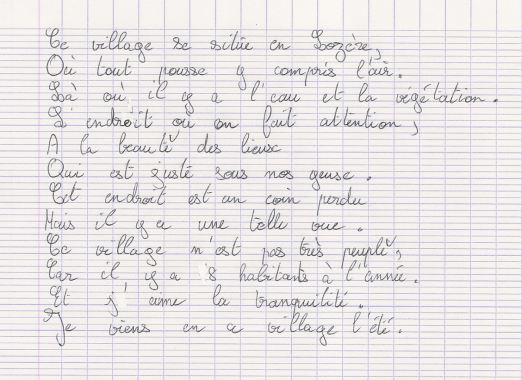 Ce village se situe en Lozère,
Où tout pousse y compris l'air.
Là où il y a l'eau et la végétation.
L'endroit où on fait attention,
A la beauté des lieux
Qui est juste sous nos yeux.
Cet endroit est un coin perdu
Mais il y a une telle vue.
Ce village n'est pas très peuplé,
Car il y a 8 habitants à l'année.
Et j'aime la tranquilité.
Je viens en ce village l'été.